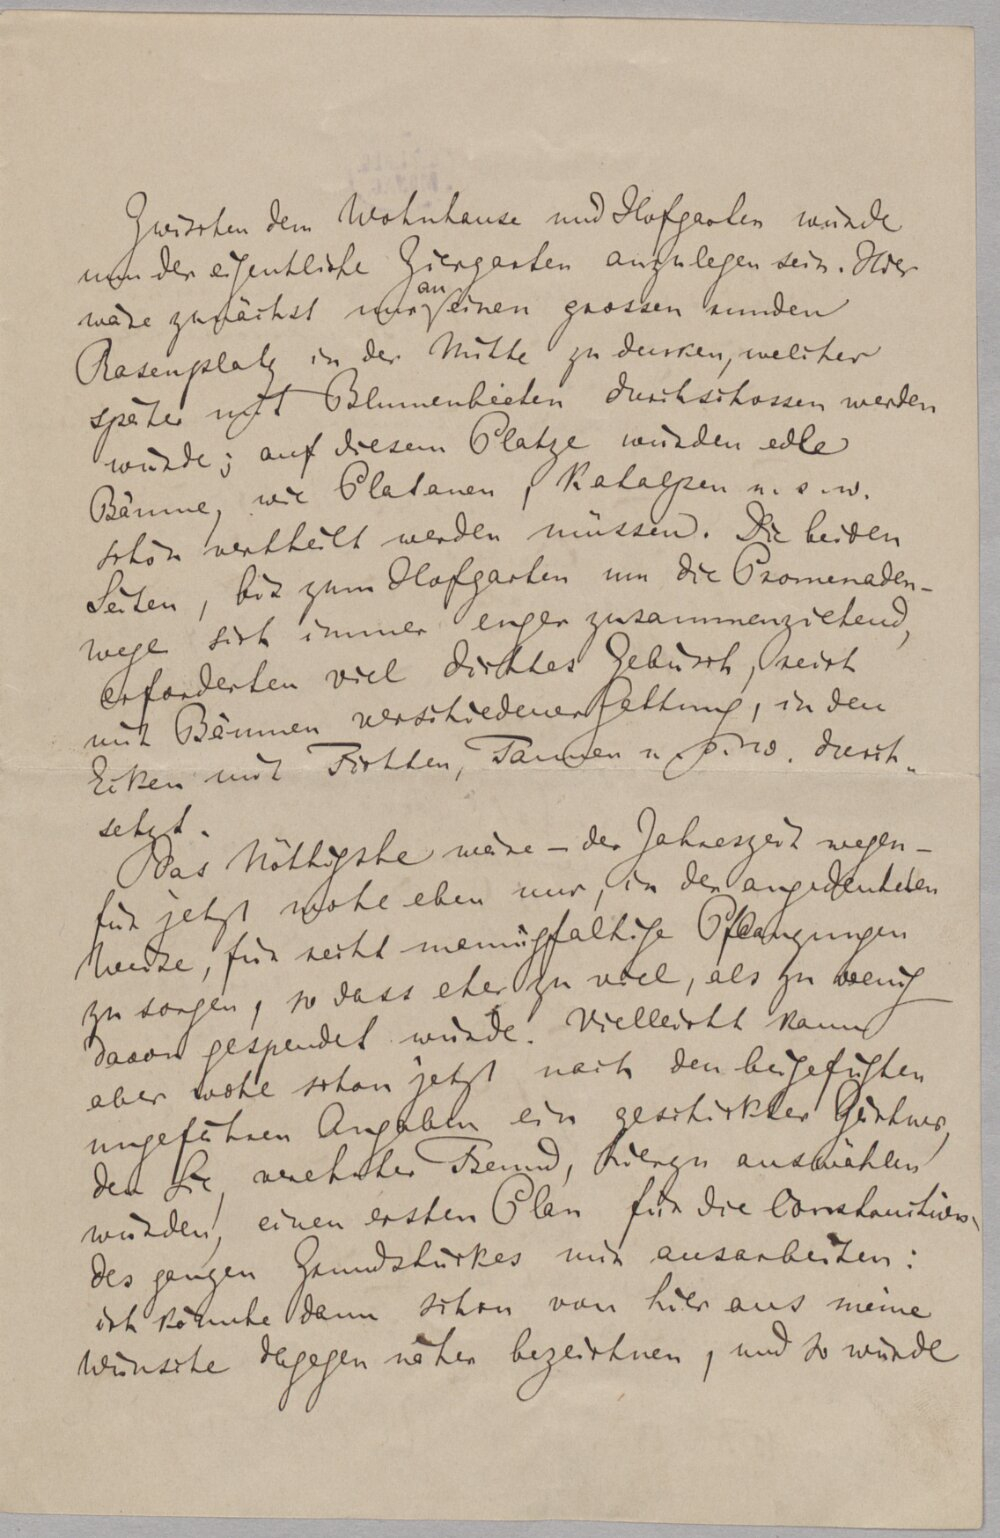 Zwischen dem Wohnhause und Hofgarten würde
nun der eigentliche Ziergarten anzulegen sein. Hier
wäre zunächst nur an einen grossen runden
Rasenplatz in der Mitte zu denken, welcher
später mit Blumenbeeten durchschossen werden
würde; auf diesem Platze würden edle
Bäume, wie Platanen, Katalpen u. s. w.
schön vertheilt werden müssen. Die beiden
Seiten, bis zum Hofgarten um die Promenaden-
wege sich immer enger zusammenziehend,
erforderten viel dichtes Gebüsch, reich
mit Bäumen verschiedener Gattung, in den
Ecken mit Fichten, Tannen u. s. w. durch-
setzt.
Das Nöthigste wäre – der Jahreszeit wegen –
für jetzt wohl eben nur, in der angedeuteten
Weise, für recht mannigfaltige Pflanzungen
zu sorgen, so dass eher zu viel, als zu wenig
davon gespendet würde. Vielleicht kann
aber wohl schon jetzt nach den beigefügten
ungefähren Angaben ein geschickter Gärtner,
den Sie, verehrter Freund, hierzu auswählen
würden, einen ersten Plan für die Construction
des ganzen Grundstückes mir ausarbeiten:
ich könnte dann schon von hier aus meine
Wünsche dagegen näher bezeichnen, und so würde